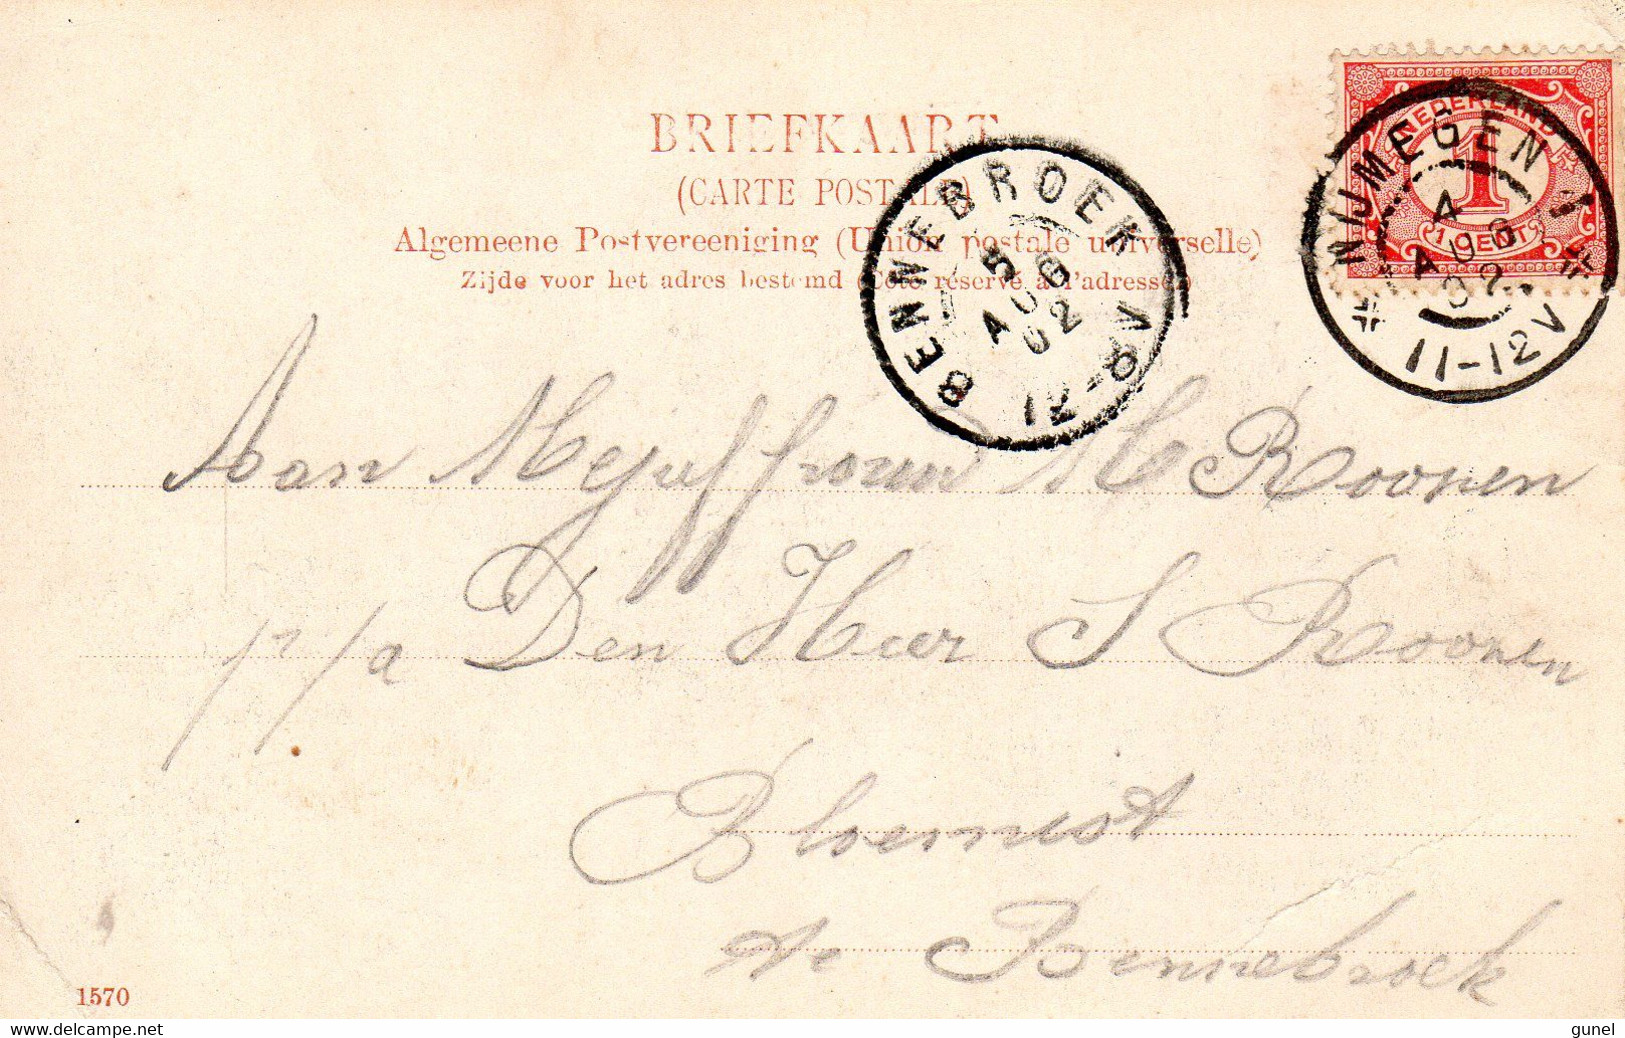 BRIEFKAART
(CARTE POSTALE)
Algemeene Postvereeniging (Union postale universelle)
Zijde voor het adres bestemd (Côté réservé à l'adresse)
NEDERLAND
1
1 CENT
NIJMEGEN 1
4
AUG
02
11-12V
BENNEBROEK
5
AUG
02
12-8V
Aan Mejuffrouw M Roozen
p/a Den Heer S Roozen
Bloemist
te Bennebroek
1570
gunel